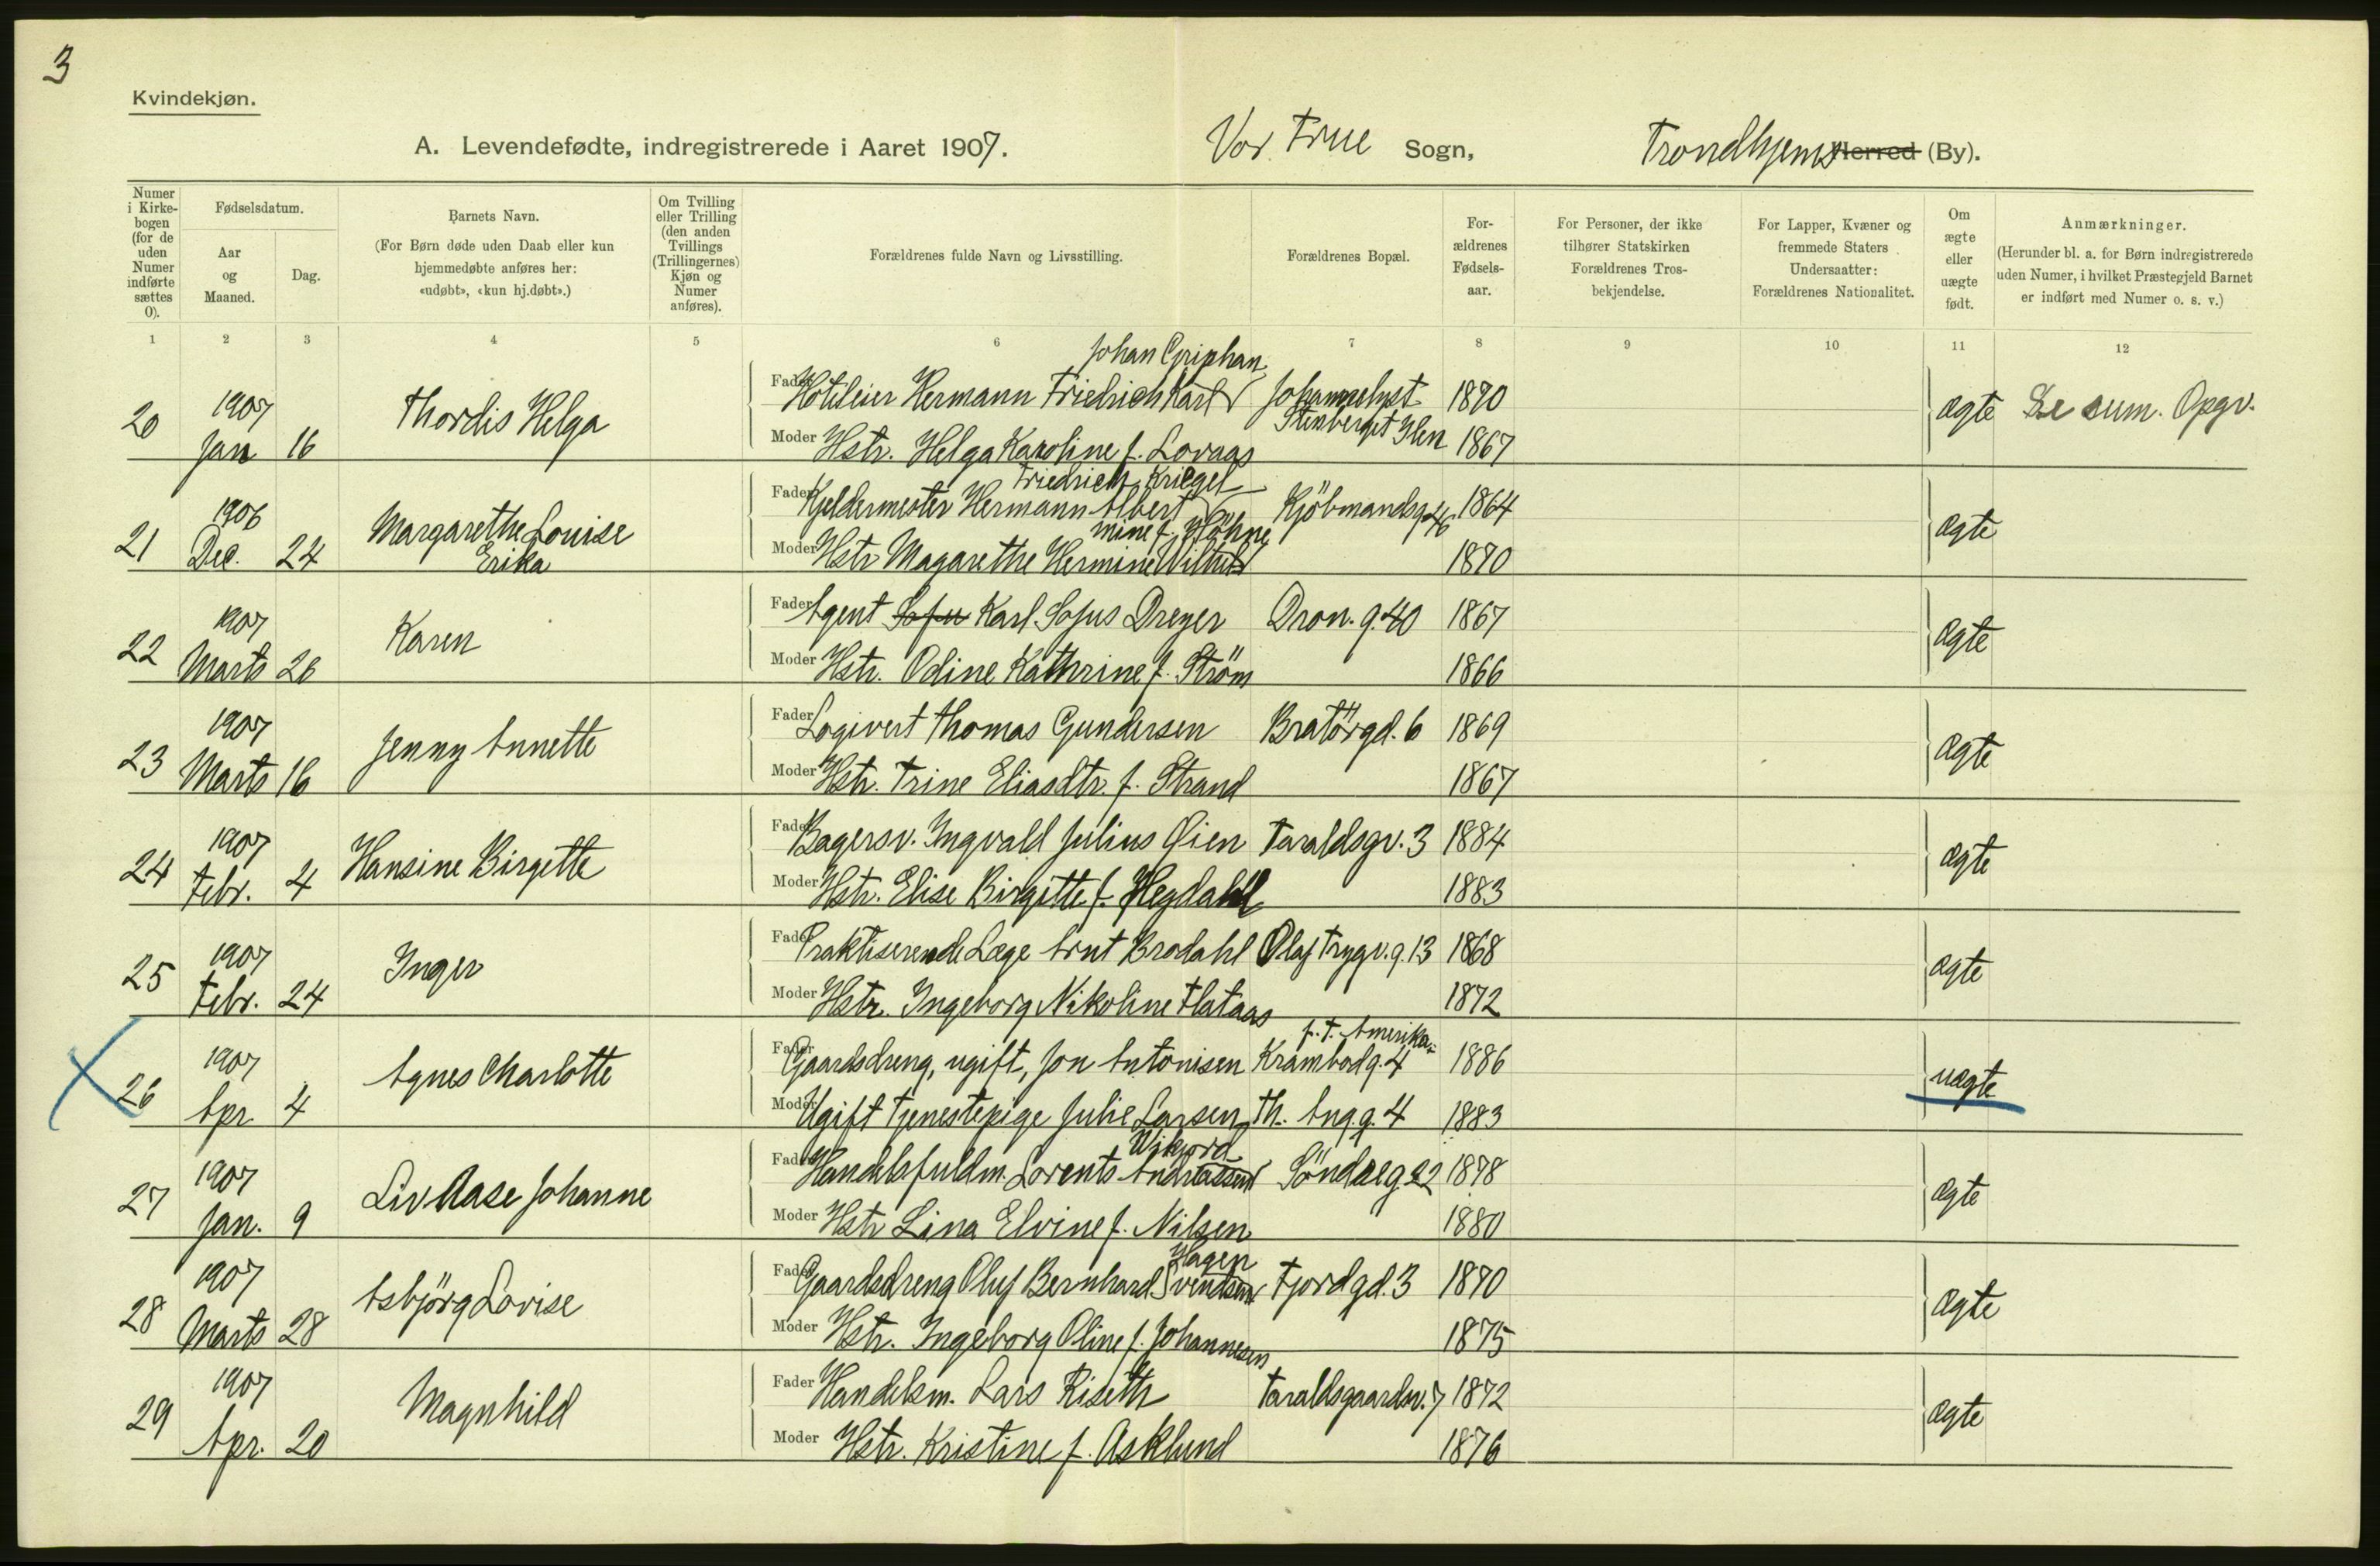 3
Kvindekjøn.
A. Levendefødte, indregistrerede i Aaret 1907. Vor Frue Sogn, Trondhjems Herred (By).
Numer i Kirkebogen (for de uden Numer indførte sættes 0).
Fødselsdatum.
Aar og Maaned.
Dag.
Barnets Navn.
(For Børn døde uden Daab eller kun hjemmedøbte anføres her: «udøbt», «kun hj.døbt».)
Om Tvilling eller Trilling (den anden Tvillings (Trillingernes) Kjøn og Numer anføres).
Forældrenes fulde Navn og Livsstilling.
Forældrenes Bopæl.
Forældrenes Fødselsaar.
For Personer, der ikke tilhører Statskirken Forældrenes Trosbekjendelse.
For Lapper, Kvæner og fremmede Staters Undersaatter: Forældrenes Nationalitet.
Om ægte eller uægte født.
Anmærkninger.
(Herunder bl. a. for Børn indregistrerede uden Numer, i hvilket Præstegjeld Barnet er indført med Numer o. s. v.)
1 2 3 4 5 6 7 8 9 10 11 12
20 1907 Jan 16 Thordis Helga
Fader Hoteleier Hermann Friedrich Karl Johan Johannelyst 1870 ægte Se sum. Opgv.
Moder Hstr. Helga Karoline f. Lovaas Stenberget Ilen 1867
21 1906 Dec. 24 Margarethe Louise Erika
Fader Kjeldermester Hermann Albert Friedrich Kriegel Kjöbmandsg. 46 1864 ægte
Moder Hstr Magarethe Hermine Wilhelmine f. Höhne 1870
22 1907 Marts 26 Karen
Fader Agent Sofu Karl Sofus Dreyer Dron. g. 40 1867 ægte
Moder Hstr. Odine Kathrine f. Ström 1866
23 1907 Marts 16 Jenny Annette
Fader Logivert Thomas Gundersen Bratörgd. 6 1869 ægte
Moder Hstr. Trine Eliasdtr. f. Strand 1867
24 1907 Febr. 4 Hansine Birgette
Fader Bagersv. Ingvald Julius Öien Taraldsgv. 3 1884 ægte
Moder Hstr. Elise Birgitte f. Hegdahl 1883
25 1907 Febr. 24 Inger
Fader Praktiserende Læge Arnt Brodahl Olaf Trygv. g. 13 1868 ægte
Moder Hstr. Ingeborg Nikoline Flataas 1872
26 1907 Apr. 4 Agnes Charlotte
Fader Gaardsdreng, ugift, Jon Antonisen Krambodg. 4 f. t. Amerika 1886 uægte
Moder Ugift Tjenestepige Julie Larsen Th. Ang. g. 4 1883
27 1907 Jan. 9 Liv Aase Johanne
Fader Handelsfuldm. Lorents Andreassen Söndreg 22 1878 ægte
Moder Hstr Lina Elvine f. Nilsen 1880
28 1907 Marts 28 Asbjörg Lovise
Fader Gaardsdreng Oluf Bernhard Svendsen Hagen Fjordgd. 3 1870 ægte
Moder Hstr. Ingeborg Oline f. Johannesen 1875
29 1907 Apr. 20 Magnhild
Fader Handelsm. Lars Riseth Taraldsgaardsv. 7 1872 ægte
Moder Hstr. Kristine f. Asklund 1876